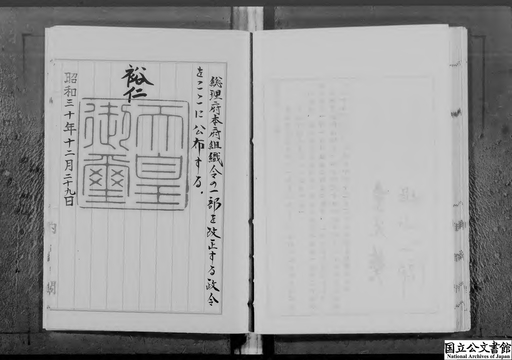 総理府本府組織令の一部を改正する政令
をここに公布する。
裕仁
天皇
御璽
昭和三十年十二月二十九日
国立公文書館
National Archives of Japan